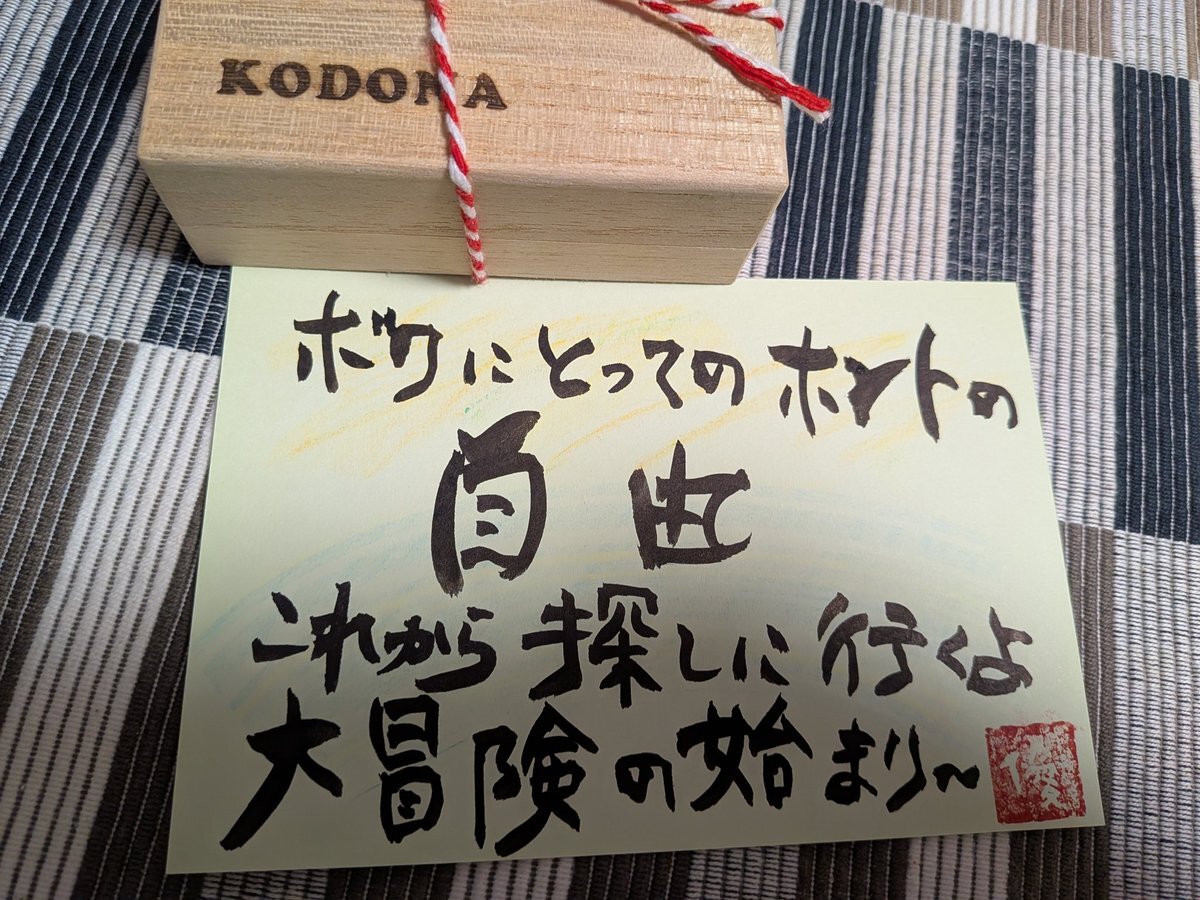 KODONA
ボクにとってのホントの
自由
これから探しに行くよ
大冒険の始まり~
優